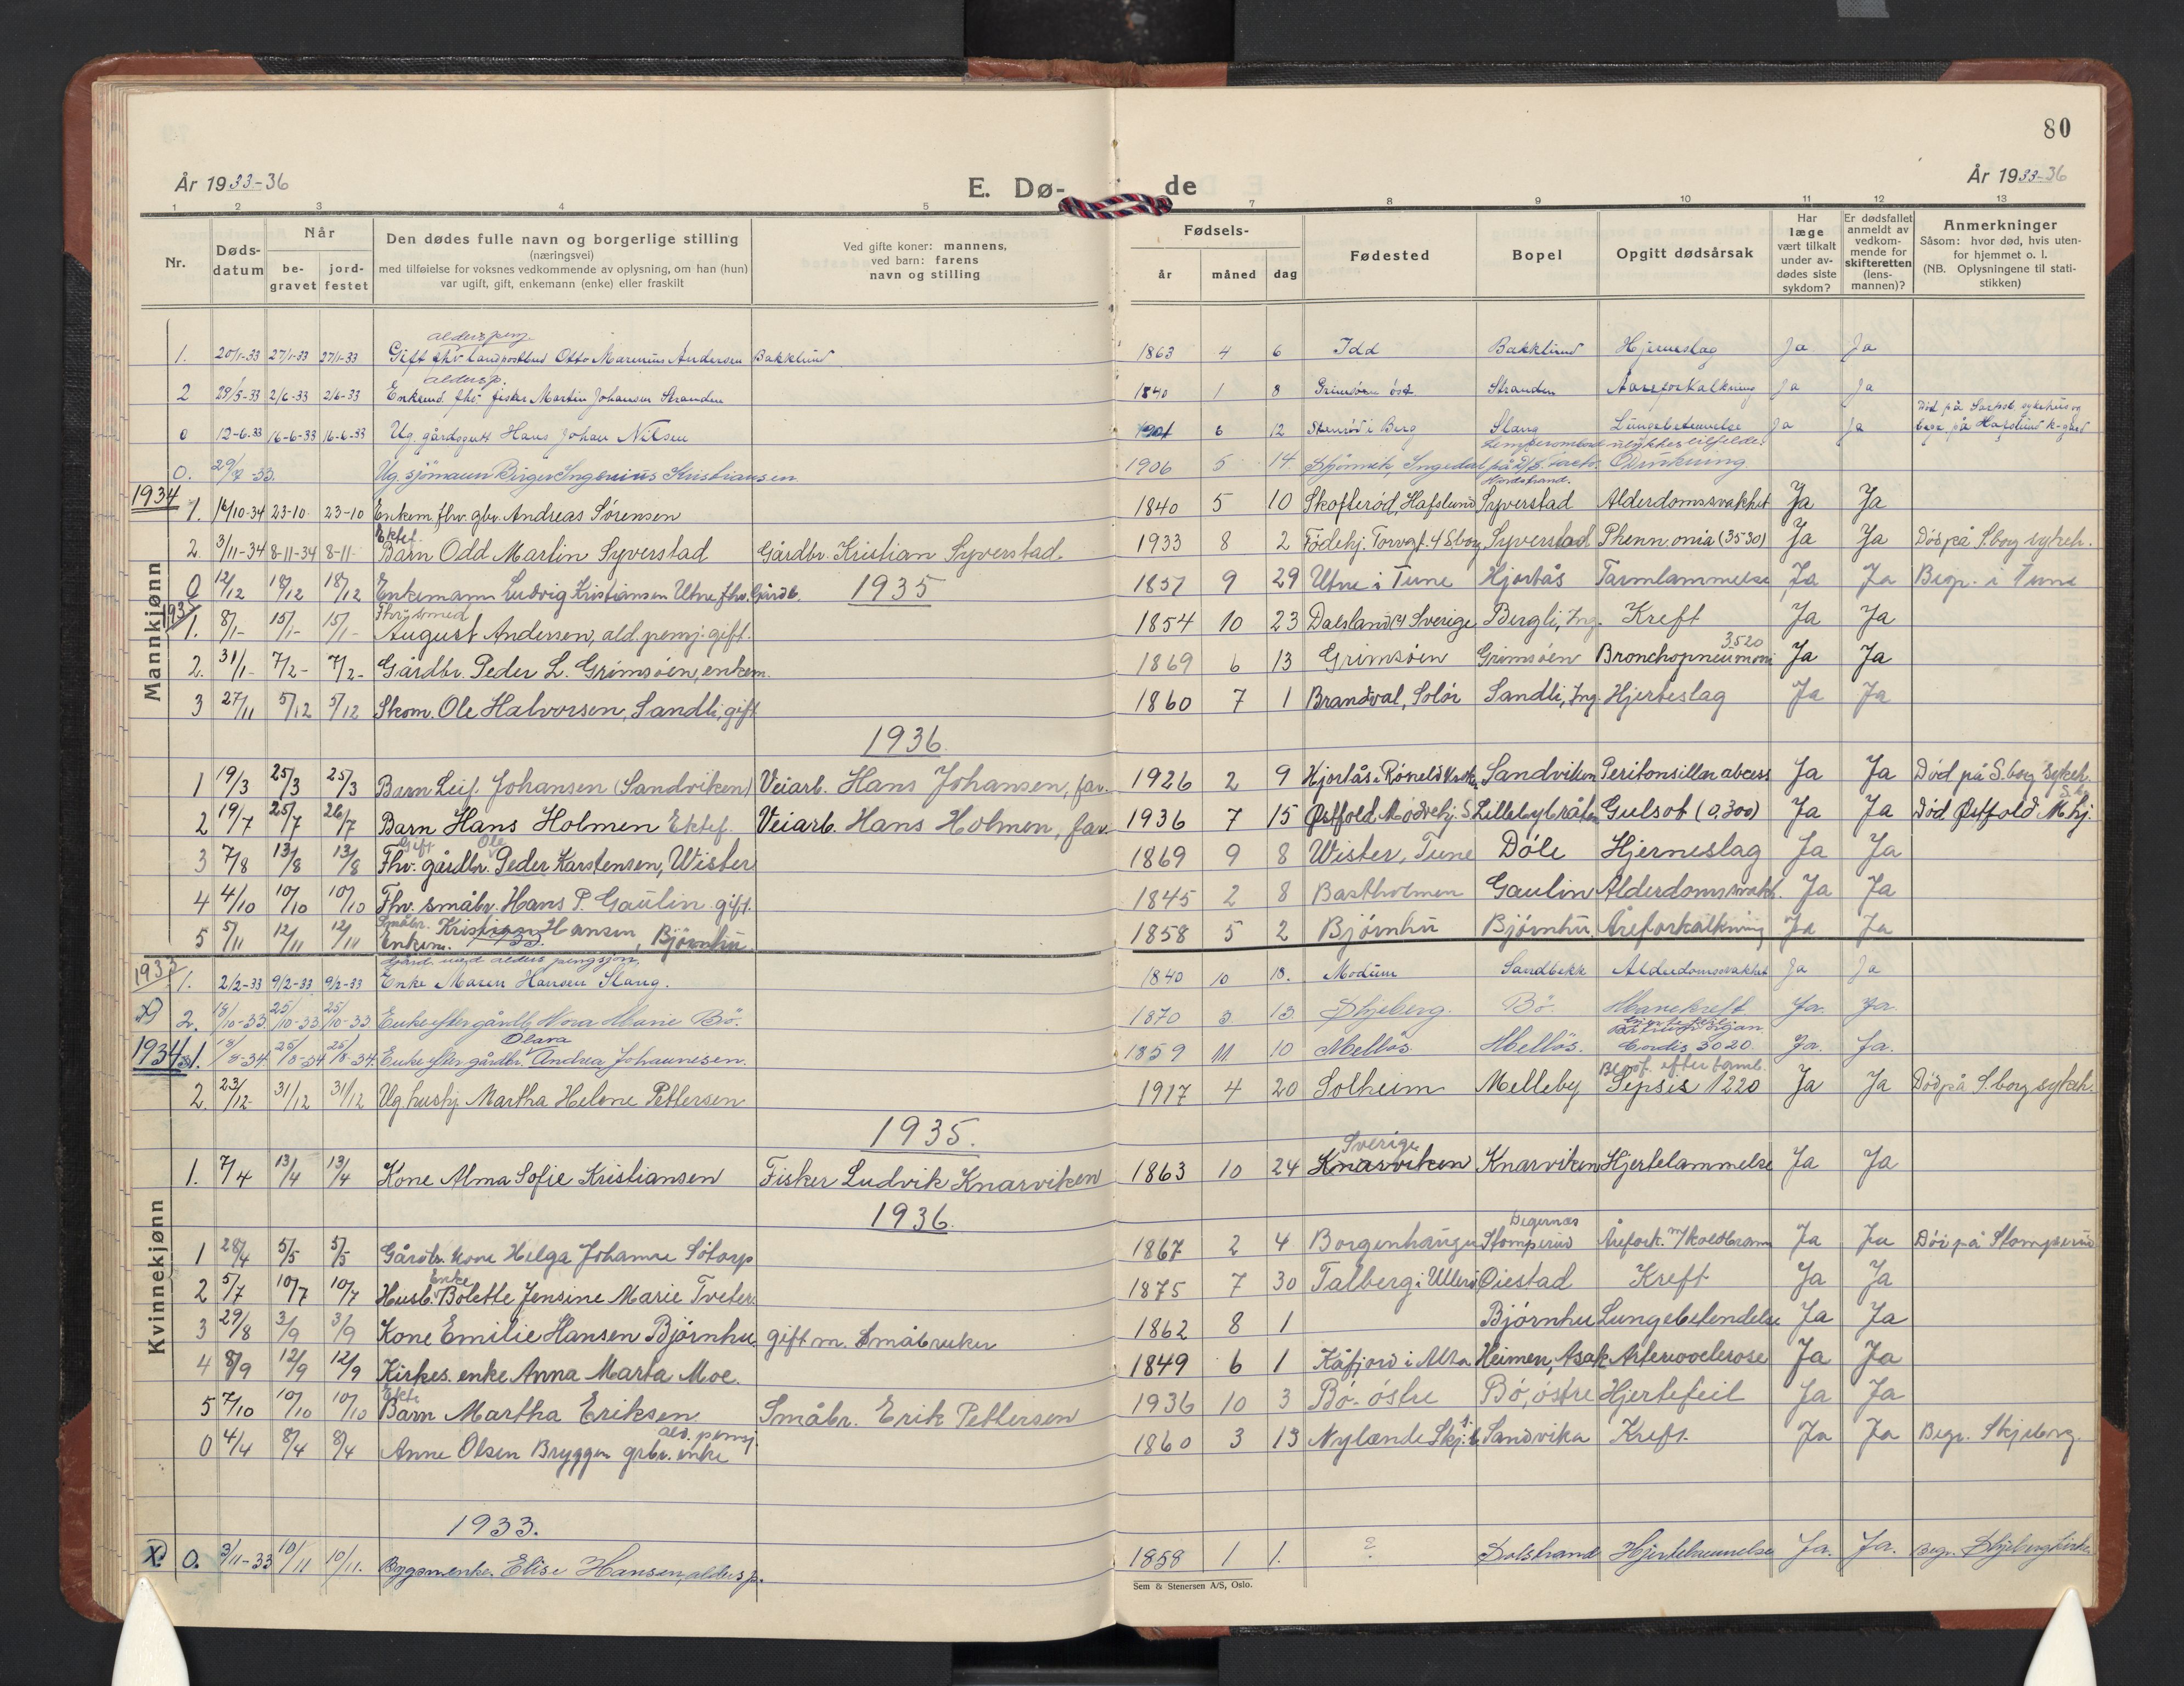 80
År 1933-36
E. Dø-
de
År 1933-36
1 2 3 4 5 7 8 9 10 11 12 13
Nr.
Døds-
datum
Når
be-
gravet
jord-
festet
Den dødes fulle navn og borgerlige stilling
(næringsvei)
med tilføielse for voksnes vedkommende av oplysning, om han (hun)
var ugift, gift, enkemann (enke) eller fraskilt
Ved gifte koner: mannens,
ved barn: farens
navn og stilling
Fødsels-
år måned dag
Fødested
Bopel
Opgitt dødsårsak
Har
læge
vært tilkalt
under av-
dødes siste
sykdom?
Er dødsfallet
anmeldt av
vedkom-
mende for
skifteretten
(lens-
mannen)?
Anmerkninger
Såsom: hvor død, hvis uten-
for hjemmet o. l.
(NB. Oplysningene til stati-
stikken)
Mannkjønn
alderspens
1. 20/1-33 27/1-33 27/1-33 Gift fhv. landpostbud Otto Marenius Andersen Bakklund 1863 4 6 Idd Bakklund Hjerneslag Ja Ja
aldersp.
2 29/5-33 2/6-33 2/6-33 Enkemd. fhv. fisker Martin Johansen Stranden 1840 1 8 Grimsøen öst Stranden Aareforkalkning Ja Ja
0 12-6-33 16-6-33 16-6-33 Ug. gårdsgutt Hans Johan Nilsen 1901 6 12 Stenrød i Berg Slang Lungebetennelse Ja Ja Död på Sarpsb. sykehus og
begr. på Hafslund k-gård
0. 29/7-33. Ug. sjömann Birger Ingenius Kristiansen 1906 5 14. ulykkestilfelde. Drukning
1934
1. 16/10-34 23-10 23-10 Enkem. fhv. gbr. Andreas Sørensen 1840 5 10 Skofterød, Hafslund Syverstad Alderdomssvakhet Ja Ja
Ektef.
2. 3/11-34 8-11-34 8-11 Barn Odd Martin Syverstad Gårdbr. Kristian Syverstad. 1933 8 2 Födehj. Torvgt. 4 S.borg Syverstad Phennonia (3530) Ja Ja Död på S.borg sykeh.
0 12/12 18/12 18/12 Enkemann Ludvig Kristiansen Utne fhv. Gårdb. 1857 9 29 Utne i Tune Hjortås Tarmlammelse Ja Ja Begr. i Tune
1935
1935 Fhv. smed
1. 8/1- 15/1- 15/1- August Andersen, ald. pensj. gift. 1854 10 23 Dalsland Sverige Bergli, Ing. Kreft Ja Ja
2. 31/1- 7/2- 7/2- Gårdbr. Peder L. Grimsöen, enkem. 1869 6 13 Grimsöen Grimsöen Bronchopneumoni 3520 Ja Ja
3 27/11 5/12 5/12 Skom. Ole Halvorsen, Sandli, gift 1860 7 1 Brandval, Solör Sandli, Ing. Hjerteslag Ja Ja
1936.
1 19/3 25/3 25/3 Barn Leif Johansen (Sandviken) Veiarb. Hans Johansen, far. 1926 2 9 Hjortås i Rokke Sandviken Peritonsillar abcess Ja Ja Död på S.borg sykeh.
2 19/7 25/7 26/7 Barn Hans Holmen Ektef. Veiarb. Hans Holmen, far 1936 7 15 Østfold Mödrehj. S. Lillebybråten Gulsot (0,300) Ja Ja Död Østfold M.hj.
Gift Ole
3 7/8 13/8 13/8 Fhv. gårdbr. Peder Karstensen, Wister 1869 9 8 Wister, Tune Döle Hjerneslag Ja Ja
4 4/10 10/10 10/10 Fhv. småbr. Hans P. Gaulin gift. 1845 2 8 Bastholmen Gaulin Alderdomssvakh. Ja Ja
Småbr.
5 5/11 12/11 12/11 Enkem. Kristian Hansen, Bjørnhu 1858 5 2 Bjørnhu Bjørnhu. Åreforkalkning Ja Ja
Kvinnekjønn
1933.
1933 Gårdb. med alders pensjon.
1. 2/2-33 9/2-33 9/2-33 Enke Maren Hansen Slang. 1840 10 18. Modum Sandbekk Alderdomssvakhet Ja Ja
2. 18/10-33. 25/10-33 25/10-33. Enke efter gårdb. Nora Marie Bö. 1870 3 13 Skjeberg. Bö. Mavekreft Ja. Ja.
1934 Olava
1. 25/8-34 25/8-34. Enke efter gårdbr. Andrea Johannesen. 1859 11 10 Mellös Mellös. Cordis 3020. Ja. Ja.
2. 23/12- 31/12 31/12 Ug. hushj. Martha Helene Pettersen 1917 4 20 Solheim Melleby Sepsis 1220 Ja Ja Död på S.borg sykeh.
1935.
Sverige
1. 7/4 13/4 13/4 Kone Alma Sofie Kristiansen Fisker Ludvik Knarviken 1863 10 24 Knarviken Knarviken Hjertelammelse Ja Ja
1936.
Degernes
1 28/4 5/5 5/5 Gårdbr. kone Helga Johanne Sötorp 1867 2 4 Borgenhaugen Stomperud Årefork. m/ koldbrann Ja Ja Död på Stomperud
Enke
2 5/7 10/7 10/7 Husb. Bolette Jensine Marie Tveter. 1875 7 30 Talberg i Ullerö Öiestad Kreft Ja Ja
3 29/8 3/9 3/9 Kone Emilie Hansen Björnhu. gift m. Småbruker 1862 8 1 Bjørnhu Lungebetendelse Ja Ja
4 8/9 12/9 12/9 Kirkes. enke Anna Marta Moe. 1849 6 1 Kåfjord i Alta Heimen, Asak Ja Ja
Ekte
5 7/10 10/10 10/10 Barn Martha Eriksen Småbr. Erik Pettersen 1936 10 3 Bö östre Bö, östre Hjertefeil Ja Ja
ald. pensj.
0 4/4 8/4 8/4 Anne Olsen Bryggen grbr. enke 1860 3 13 Nylænde Skj.b. Sandvika Kreft. Ja Ja Begr. Skjeberg.
1933.
X. 0. 3/11-33 10/11 10/11. Elise Hansen, aldersp. 1858 1 1. ? Dalstrand Ja. Ja. Begr. Skjeberg kirke
Sem & Stenersen A/S, Oslo.